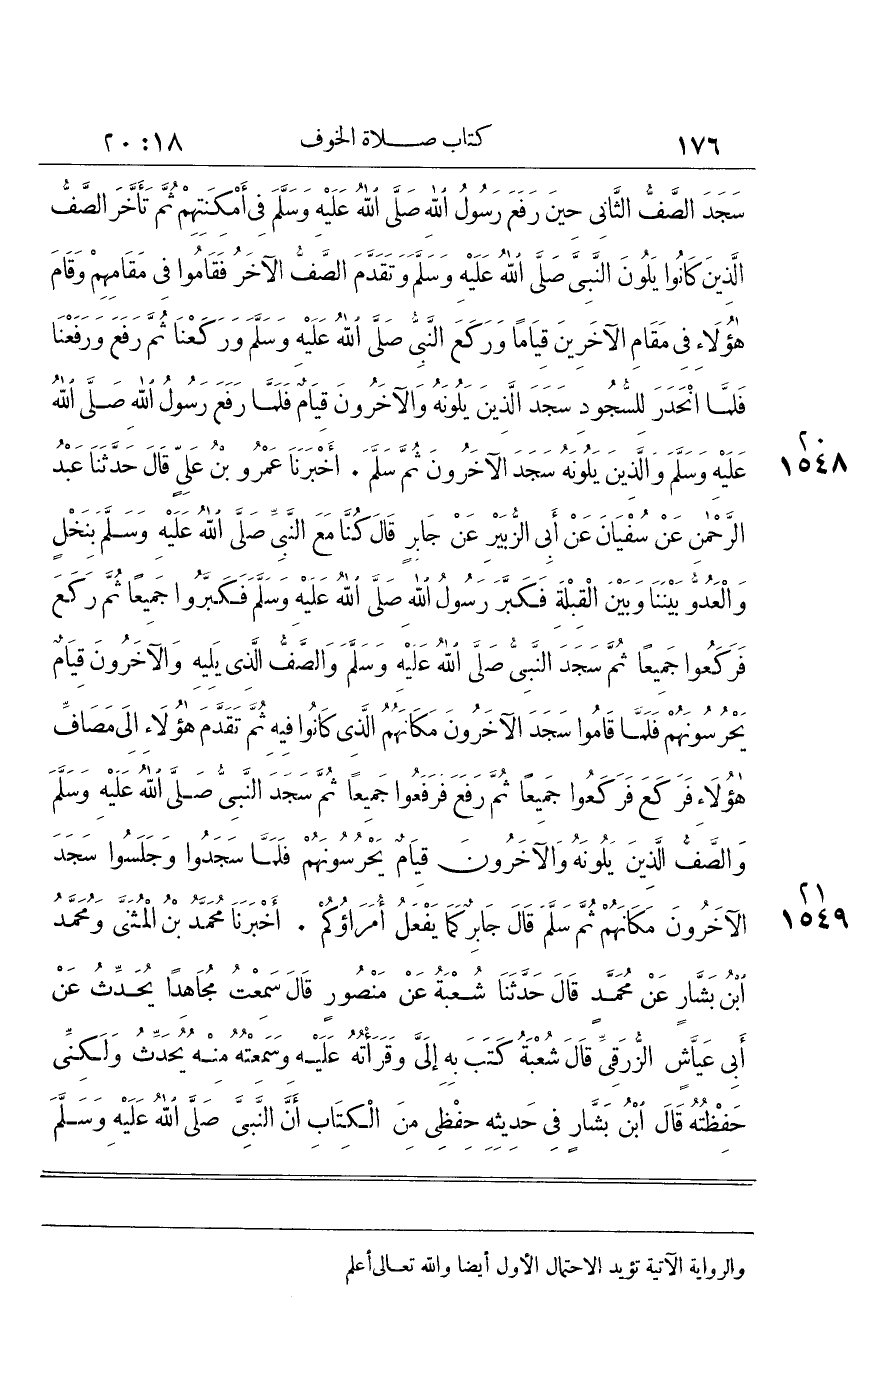 ١٧٦ كتاب صلاة الخوف ١٨: ٢٠
سَجَدَ الصَّفُّ الثَّانِى حِينَ رَفَعَ رَسُولُ اللهِ صَلَّى اللهُ عَلَيْهِ وَسَلَّمَ فِى أَمْكِنَتِهِمْ ثُمَّ تَأَخَّرَ الصَّفُّ
الَّذِينَ كَانُوا يَلُونَ النَّبِىَّ صَلَّى اللهُ عَلَيْهِ وَسَلَّمَ وَتَقَدَّمَ الصَّفُّ الآخَرُ فَقَامُوا فِى مَقَامِهِمْ وَقَامَ
هٰؤُلَاءِ فِى مَقَامِ الآخَرِينَ قِيَامًا وَرَكَعَ النَّبِىُّ صَلَّى اللهُ عَلَيْهِ وَسَلَّمَ وَرَكَعْنَا ثُمَّ رَفَعَ وَرَفَعْنَا
فَلَمَّا انْحَدَرَ لِلسُّجُودِ سَجَدَ الَّذِينَ يَلُونَهُ وَالآخَرُونَ قِيَامٌ فَلَمَّا رَفَعَ رَسُولُ اللهِ صَلَّى اللهُ
٢٠
١٥٤٨
عَلَيْهِ وَسَلَّمَ وَالَّذِينَ يَلُونَهُ سَجَدَ الآخَرُونَ ثُمَّ سَلَّمَ . أَخْبَرَنَا عَمْرُو بْنُ عَلِىٍّ قَالَ حَدَّثَنَا عَبْدُ
الرَّحْمٰنِ عَنْ سُفْيَانَ عَنْ أَبِى الزُّبَيْرِ عَنْ جَابِرٍ قَالَ كُنَّا مَعَ النَّبِىِّ صَلَّى اللهُ عَلَيْهِ وَسَلَّمَ بِنَخْلٍ
وَالْعَدُوُّ بَيْنَنَا وَبَيْنَ الْقِبْلَةِ فَكَبَّرَ رَسُولُ اللهِ صَلَّى اللهُ عَلَيْهِ وَسَلَّمَ فَكَبَّرُوا جَمِيعًا ثُمَّ رَكَعَ
فَرَكَعُوا جَمِيعًا ثُمَّ سَجَدَ النَّبِىُّ صَلَّى اللهُ عَلَيْهِ وَسَلَّمَ وَالصَّفُّ الَّذِى يَلِيهِ وَالآخَرُونَ قِيَامٌ
يَحْرُسُونَهُمْ فَلَمَّا قَامُوا سَجَدَ الآخَرُونَ مَكَانَهُمُ الَّذِى كَانُوا فِيهِ ثُمَّ تَقَدَّمَ هٰؤُلَاءِ إِلَى مَصَافِّ
هٰؤُلَاءِ فَرَكَعَ فَرَكَعُوا جَمِيعًا ثُمَّ رَفَعَ فَرَفَعُوا جَمِيعًا ثُمَّ سَجَدَ النَّبِىُّ صَلَّى اللهُ عَلَيْهِ وَسَلَّمَ
وَالصَّفُّ الَّذِينَ يَلُونَهُ وَالآخَرُونَ قِيَامٌ يَحْرُسُونَهُمْ فَلَمَّا سَجَدُوا وَجَلَسُوا سَجَدَ
٢١
١٥٤٩
الآخَرُونَ مَكَانَهُمْ ثُمَّ سَلَّمَ قَالَ جَابِرٌ كَمَا يَفْعَلُ أُمَرَاؤُكُمْ . أَخْبَرَنَا مُحَمَّدُ بْنُ الْمُثَنَّى وَمُحَمَّدُ
ابْنُ بَشَّارٍ عَنْ مُحَمَّدٍ قَالَ حَدَّثَنَا شُعْبَةُ عَنْ مَنْصُورٍ قَالَ سَمِعْتُ مُجَاهِدًا يُحَدِّثُ عَنْ
أَبِى عَيَّاشٍ الزُّرَقِىِّ قَالَ شُعْبَةُ كَتَبَ بِهِ إِلَىَّ وَقَرَأْتُهُ عَلَيْهِ وَسَمِعْتُهُ مِنْهُ يُحَدِّثُ وَلَكِنِّى
حَفِظْتُهُ قَالَ ابْنُ بَشَّارٍ فِى حَدِيثِهِ حِفْظِى مِنَ الْكِتَابِ أَنَّ النَّبِىَّ صَلَّى اللهُ عَلَيْهِ وَسَلَّمَ
والرواية الآتية تؤيد الاحتمال الأول أيضا والله تعالى أعلم